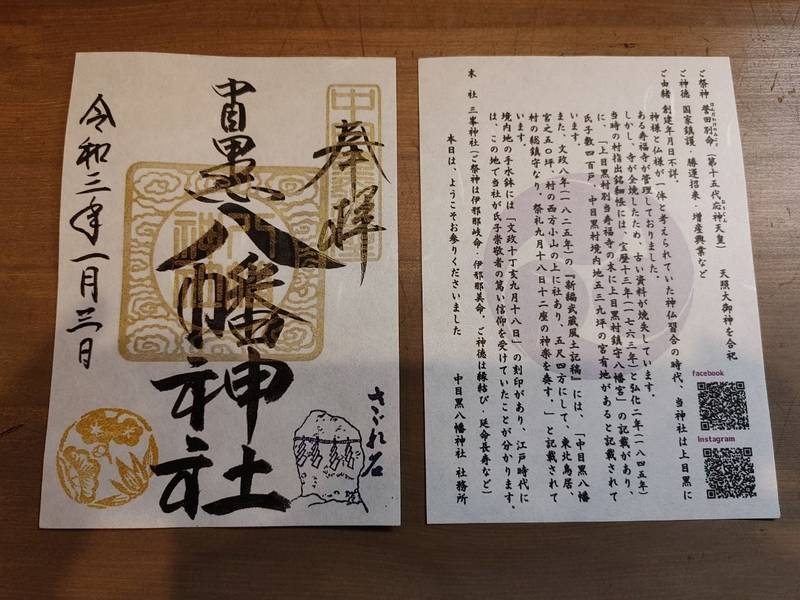 奉拝
中目黒八幡神社
令和三年一月三日
さゞれ石
ご祭神 誉田別命(第十五代応神天皇) 天照大御神を合祀
ご神徳 国家鎮護・勝運招来・増産興業など
ご由緒 創建年月日不詳。
神様と仏様が一体と考えられていた神仏習合の時代、当神社は上目黒に
ある寿福寺が管理しておりました。
しかし、寺が全焼したため、古い資料が焼失しています。
当時の村指出銘細帳には、宝暦十三年(一七六三年)と弘化二年(一八四五年)
に、「上目黒村別当寿福寺の末に上目黒村鎮守八幡宮」の記載があり、
氏子数四百戸、中目黒村境内地五三九坪の宮有地があると記載されて
います。
また、文政八年(一八二五年)の『新編武蔵風土記稿』には、「中目黒八幡
宮之五〇坪、村の西方小山の上に社あり、五尺四方にして、東北鳥居、
村の総鎮守なり、祭礼九月十八日十二座の神楽を奏す。」と記載されて
います。
境内地の手水鉢には「文政十丁亥九月十八日」の刻印があり、江戸時代に
は、この地で当社が氏子崇敬者の篤い信仰を受けていたことが分かります。
末 社 三峯神社(ご祭神は伊邪那岐命・伊邪那美命。ご神徳は縁結び・延命長寿など)
本日は、ようこそお参りくださいました 中目黒八幡神社 社務所
facebook
Instagram